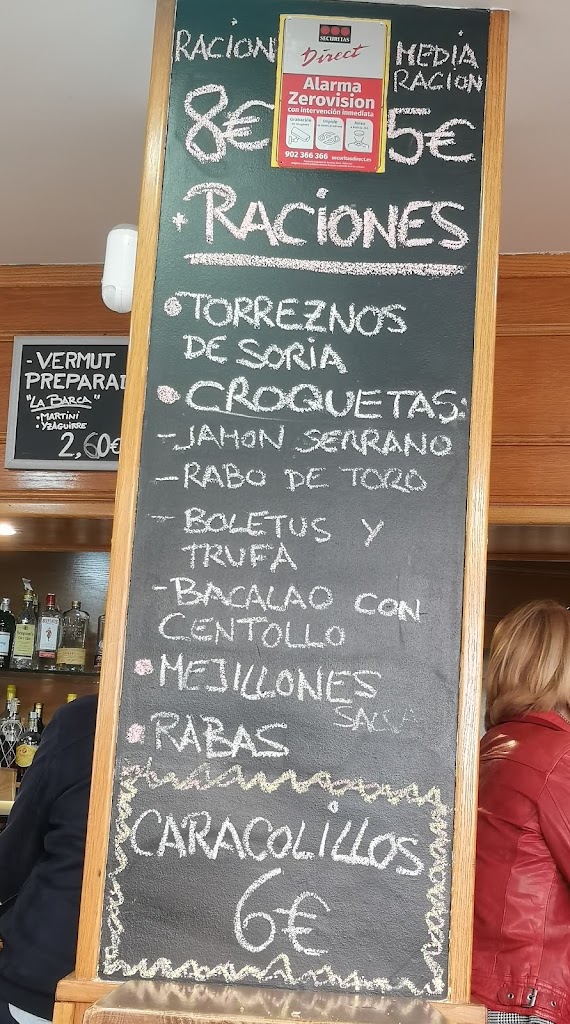 RACION
MEDIA
RACION
8€
5€
SECURITAS
Direct
Alarma
Zerovision
con intervención inmediata
902 366 366 securitasdirect.es
+ RACIONES
• TORREZNOS
DE SORIA
• CROQUETAS:
- JAMON SERRANO
- RABO DE TORO
- BOLETUS Y
TRUFA
- BACALAO CON
CENTOLLO
• MEJILLONES
SALSA
• RABAS
CARACOLILLOS
6€
- VERMUT
PREPARAD
"LA BARCA"
• MARTINI
• YZAGUIRRE
2,60€